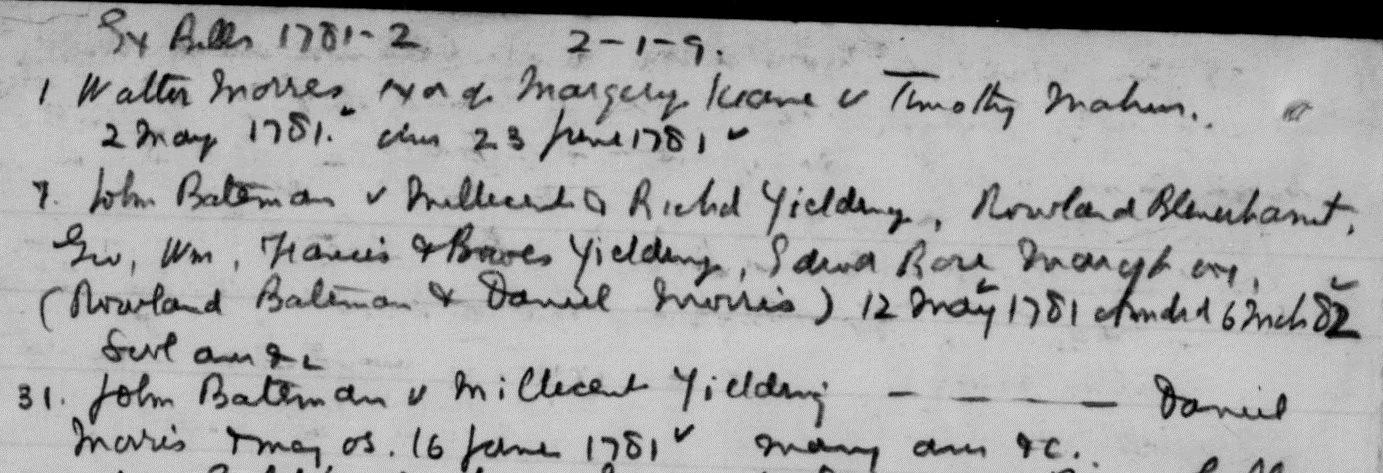 Ex Bills 1781-2 2-1-9.
1 Walter Morres exor of Margery Keane v Timothy Mahun.
2 May 1781. ans 23 June 1781
7. John Bateman v Millecent & Richd Yielding, Rowland Blenerhasset,
Geo, Wm, Francis & Bowes Yielding, Edwd Rose
(Rowland Bateman & Daniel Morris) 12 May 1781 amended 6 Mch 82
Sevl ans &c
31. John Bateman v Millecent Yielding - - - - Daniel
Morris & many os. 16 June 1781 many ans &c.